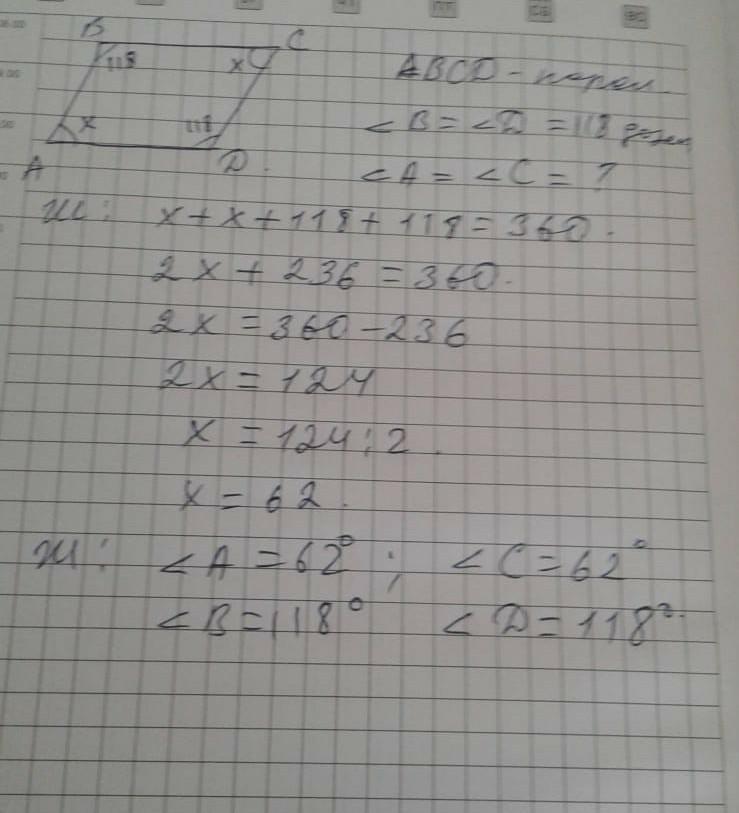 B C
118 x
x 118
A D.
ABCD - парал.
∠B = ∠D = 118
∠A = ∠C = ?
x + x + 118 + 118 = 360.
2x + 236 = 360.
2x = 360 - 236
2x = 124
x = 124 : 2.
x = 62.
Ж: ∠A = 62°; ∠C = 62°
∠B = 118° ∠D = 118°.